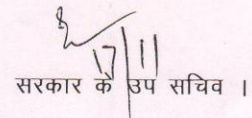 17/11
सरकार के उप सचिव ।